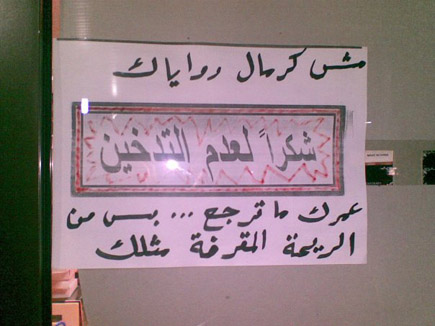 مش كرمال رواياك
شكراً لعدم التدخين
عمرك ما ترجع ... بس من
الريحة المقرفة مثلك